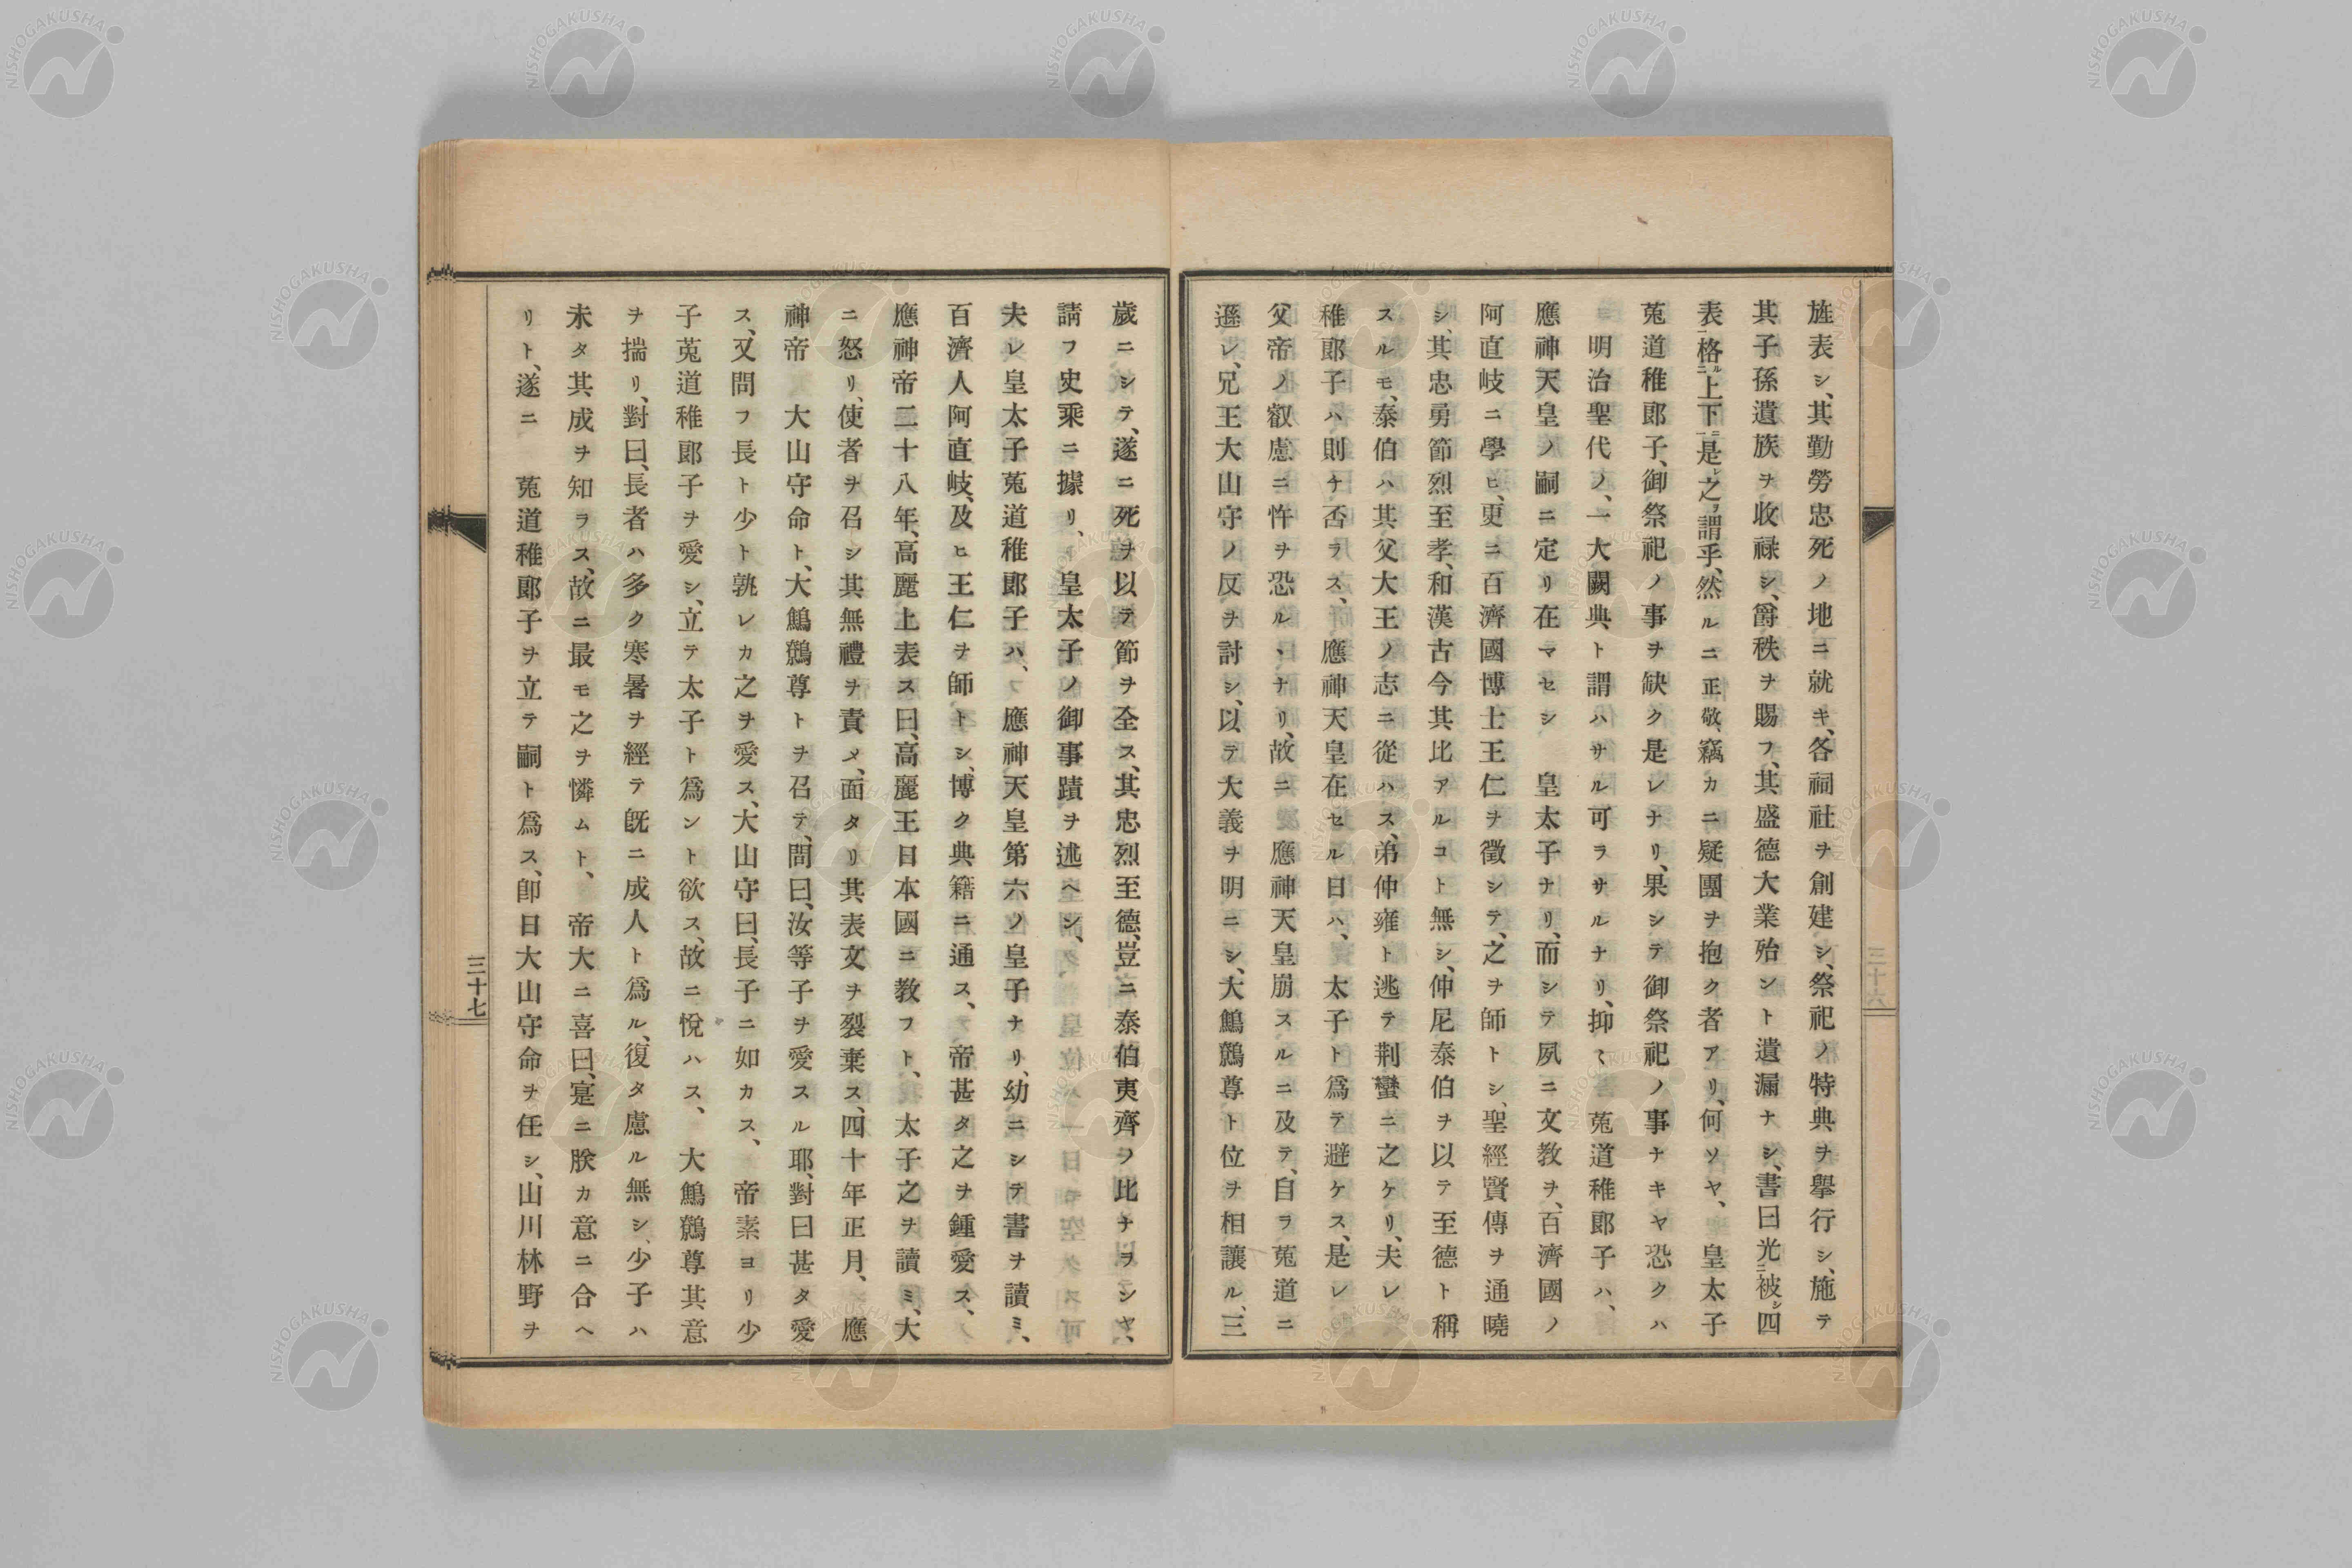 旌表シ、其勤勞忠死ノ地ニ就キ、各祠社ヲ創建シ、祭祀ノ特典ヲ擧行シ、施テ
其子孫遺族ヲ收祿シ、爵秩ヲ賜フ、其盛德大業殆ント遺漏ナシ、書曰光ニ被シ四
表ニ格ル上下ニ是レ之ヲ謂乎、然ルニ正敬、竊カニ疑團ヲ抱ク者アリ、何ソヤ、皇太子
菟道稚郎子、御祭祀ノ事ヲ缺ク是レナリ、果シテ御祭祀ノ事ナキヤ恐クハ
明治聖代ノ、一大闕典ト謂ハサル可ラサルナリ、抑〻菟道稚郎子ハ、
應神天皇ノ嗣ニ定リ在マセシ 皇太子ナリ、而シテ夙ニ文敎ヲ、百濟國ノ
阿直岐ニ學ヒ、更ニ百濟國博士王仁ヲ徵シテ、之ヲ師トシ、聖經賢傳ヲ通曉
シ、其忠勇節烈至孝、和漢古今其比アルコト無シ、仲尼泰伯ヲ以テ至德ト稱
スルモ、泰伯ハ其父大王ノ志ニ從ハス、弟仲雍ト逃テ荆蠻ニ之ケリ、夫レ
稚郎子ハ則チ否ラス、應神天皇在セル日ハ、太子ト爲テ避ケス、是レ
父帝ノ叡慮ニ忤ヲ恐ル、ナリ、故ニ應神天皇崩スルニ及テ、自ラ菟道ニ
遜レ、兄王大山守ノ反ヲ討シ、以テ大義ヲ明ニシ、大鷦鷯尊ト位ヲ相讓ル、三
三十六
歲ニシテ、遂ニ死ヲ以テ節ヲ全ス、其忠烈至德、豈ニ泰伯夷齊ノ比ナラシヤ、
請フ史乘ニ據リ、皇太子ノ御事蹟ヲ述ヘン、
夫レ皇太子菟道稚郎子ハ、應神天皇第六ノ皇子ナリ、幼ニシテ書ヲ讀ミ、
百濟人阿直岐、及ヒ王仁ヲ師トシ、博ク典籍ニ通ス、帝甚タ之ヲ鍾愛ス、
應神帝二十八年、高麗上表ス曰、高麗王日本國ニ敎フト、太子之ヲ讀ミ、大
ニ怒リ、使者ヲ召シ其無禮ヲ責メ、面タリ其表文ヲ裂棄ス、四十年正月、應
神帝 大山守命ト、大鷦鷯尊トヲ召テ、問曰、汝等子ヲ愛スル耶、對曰甚タ愛
ス、又問フ長ト少ト孰レカ之ヲ愛ス、大山守曰、長子ニ如カス、帝素ヨリ少
子菟道稚郎子ヲ愛シ、立テ太子ト爲ント欲ス、故ニ悅ハス、大鷦鷯尊其意
ヲ揣リ、對曰、長者ハ多ク寒暑ヲ經テ旣ニ成人ト爲ル、復タ慮ル無シ、少子ハ
未タ其成ヲ知ラス、故ニ最モ之ヲ憐ムト、帝大ニ喜曰、寔ニ朕カ意ニ合ヘ
リト、遂ニ 菟道稚郎子ヲ立テ嗣ト爲ス、卽日大山守命ヲ任シ、山川林野ヲ
三十七